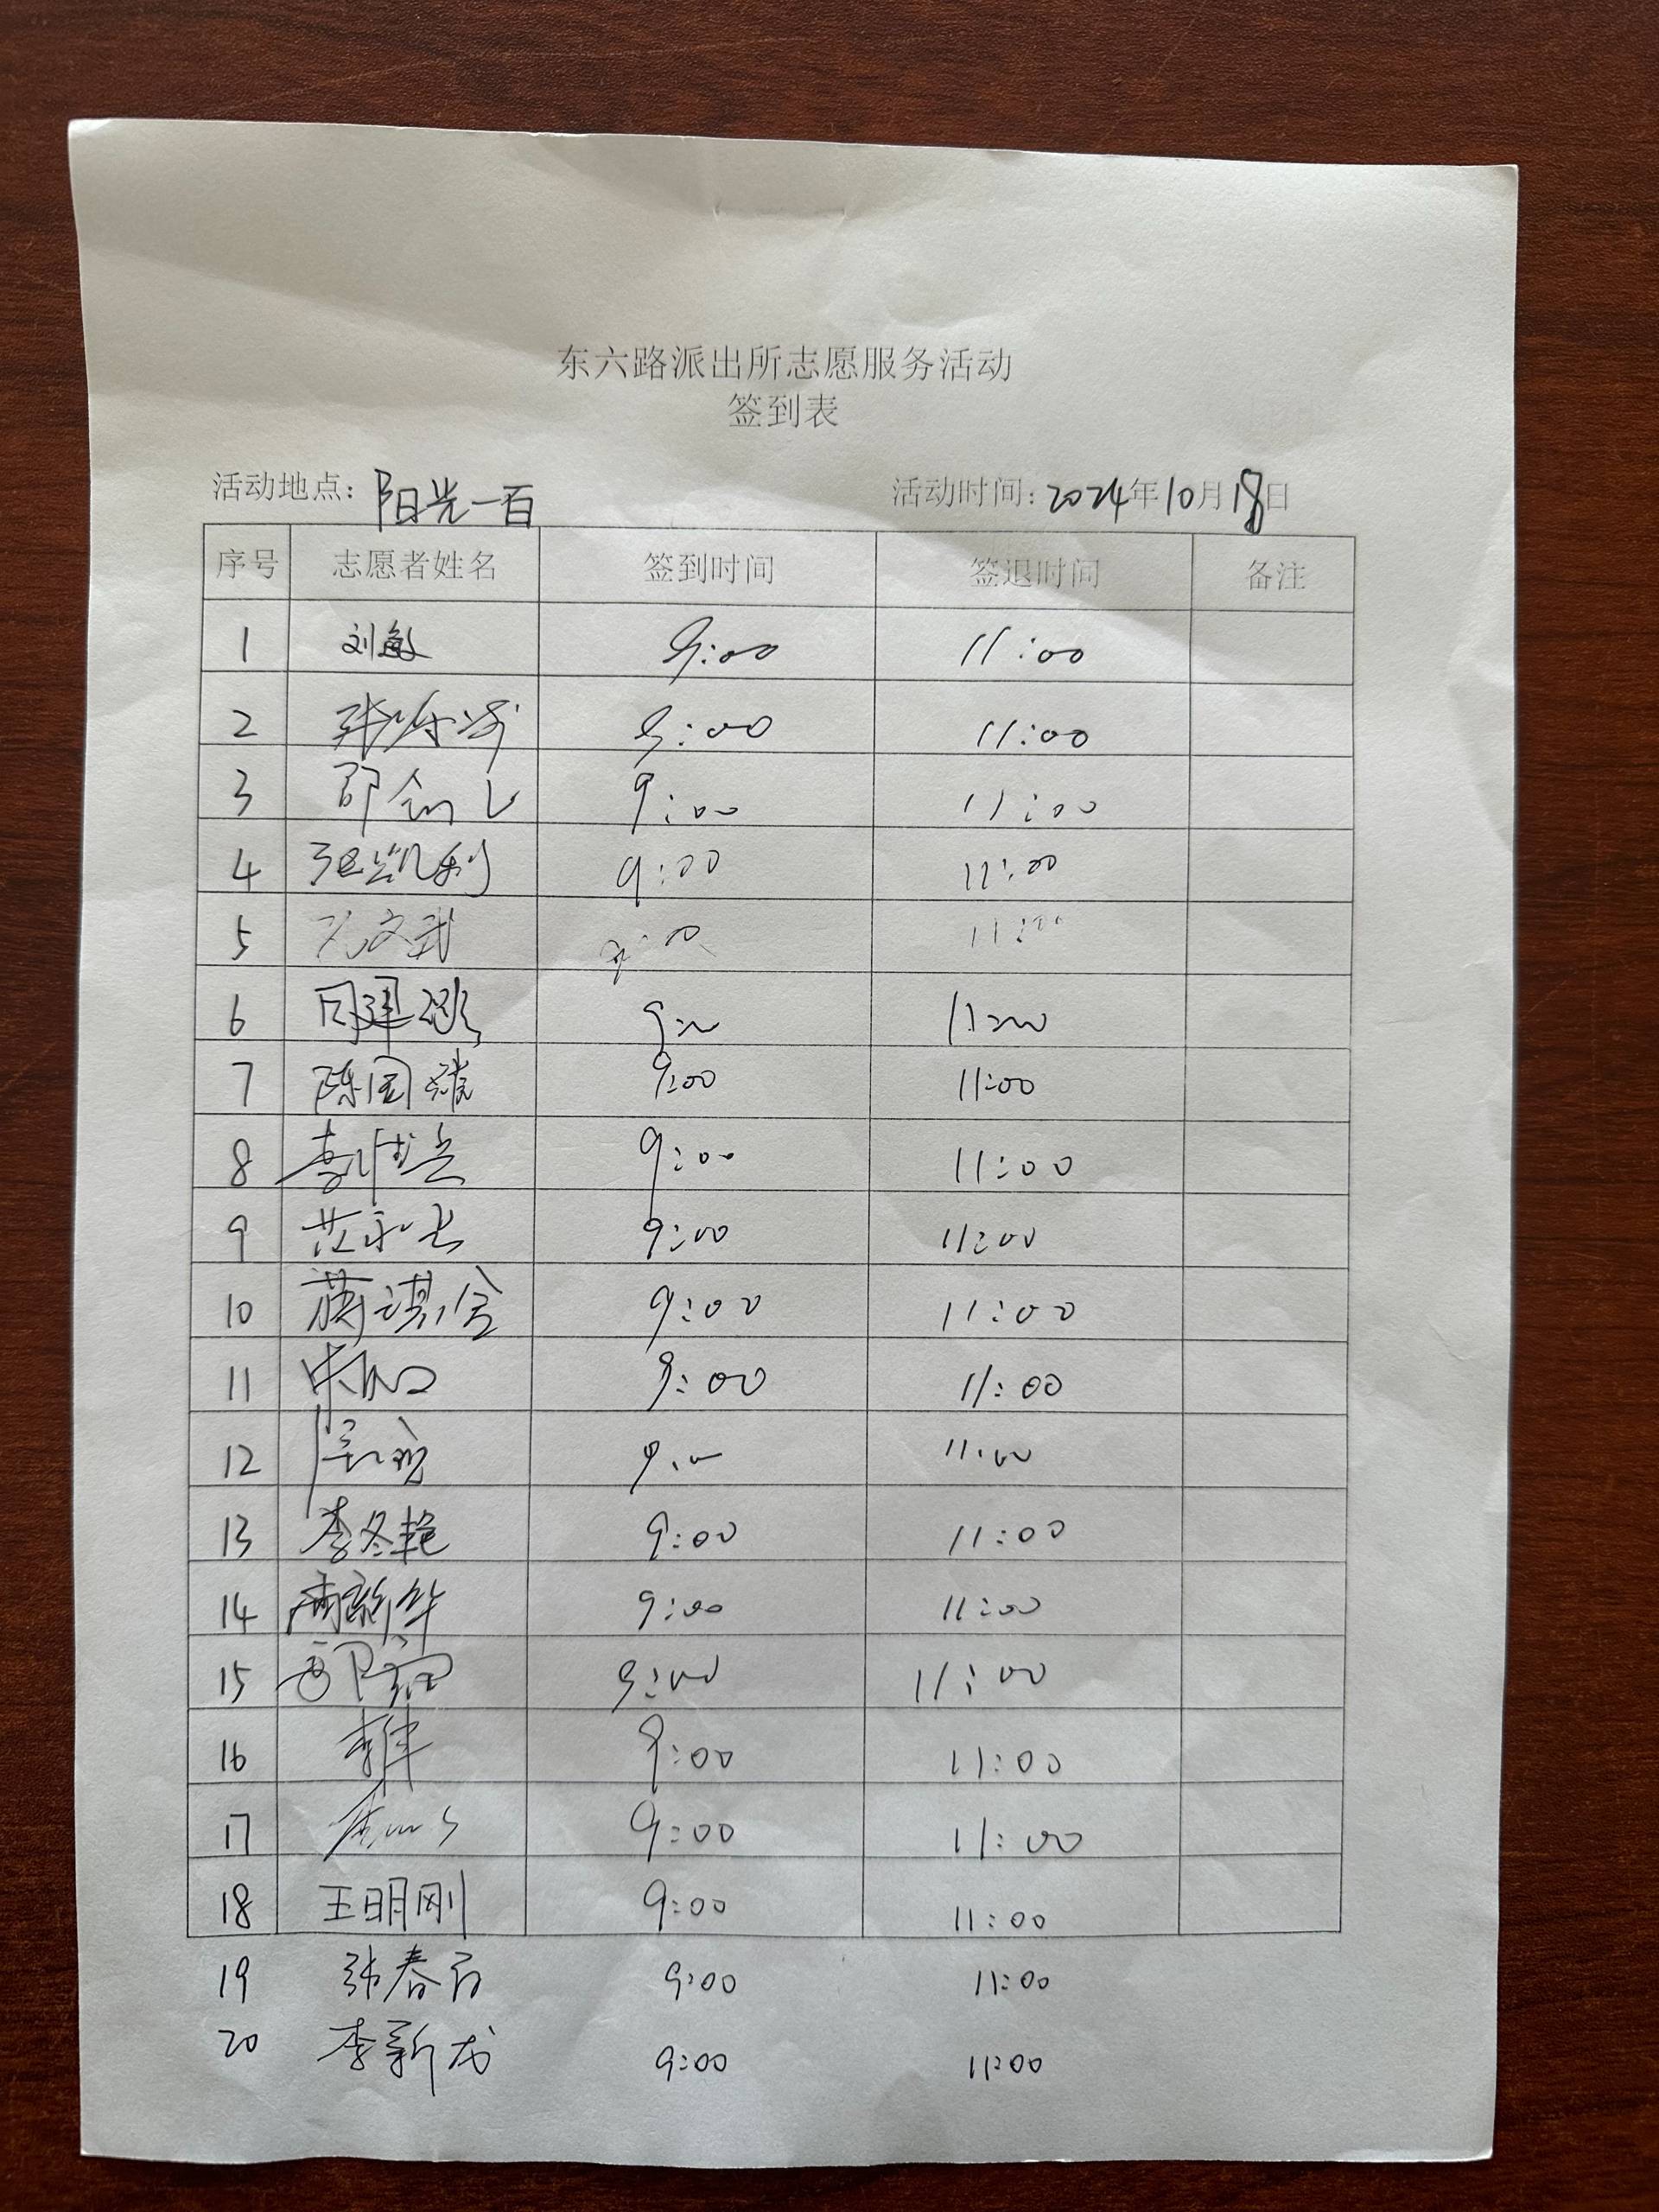 东六路派出所志愿服务活动
签到表
活动地点：阳光一百 活动时间：2024年10月18日
序号 志愿者姓名 签到时间 签退时间 备注
1 刘 9:00 11:00
2 9:00 11:00
3 9:00 11:00
4 张凯利 9:00 11:00
5 孔文武 9:00 11:00
6 9:00 11:00
7 陈国 9:00 11:00
8 9:00 11:00
9 9:00 11:00
10 9:00 11:00
11 9:00 11:00
12 9:00 11:00
13 李冬艳 9:00 11:00
14 9:00 11:00
15 9:00 11:00
16 9:00 11:00
17 9:00 11:00
18 王明刚 9:00 11:00
19 张春 9:00 11:00
20 李新龙 9:00 11:00